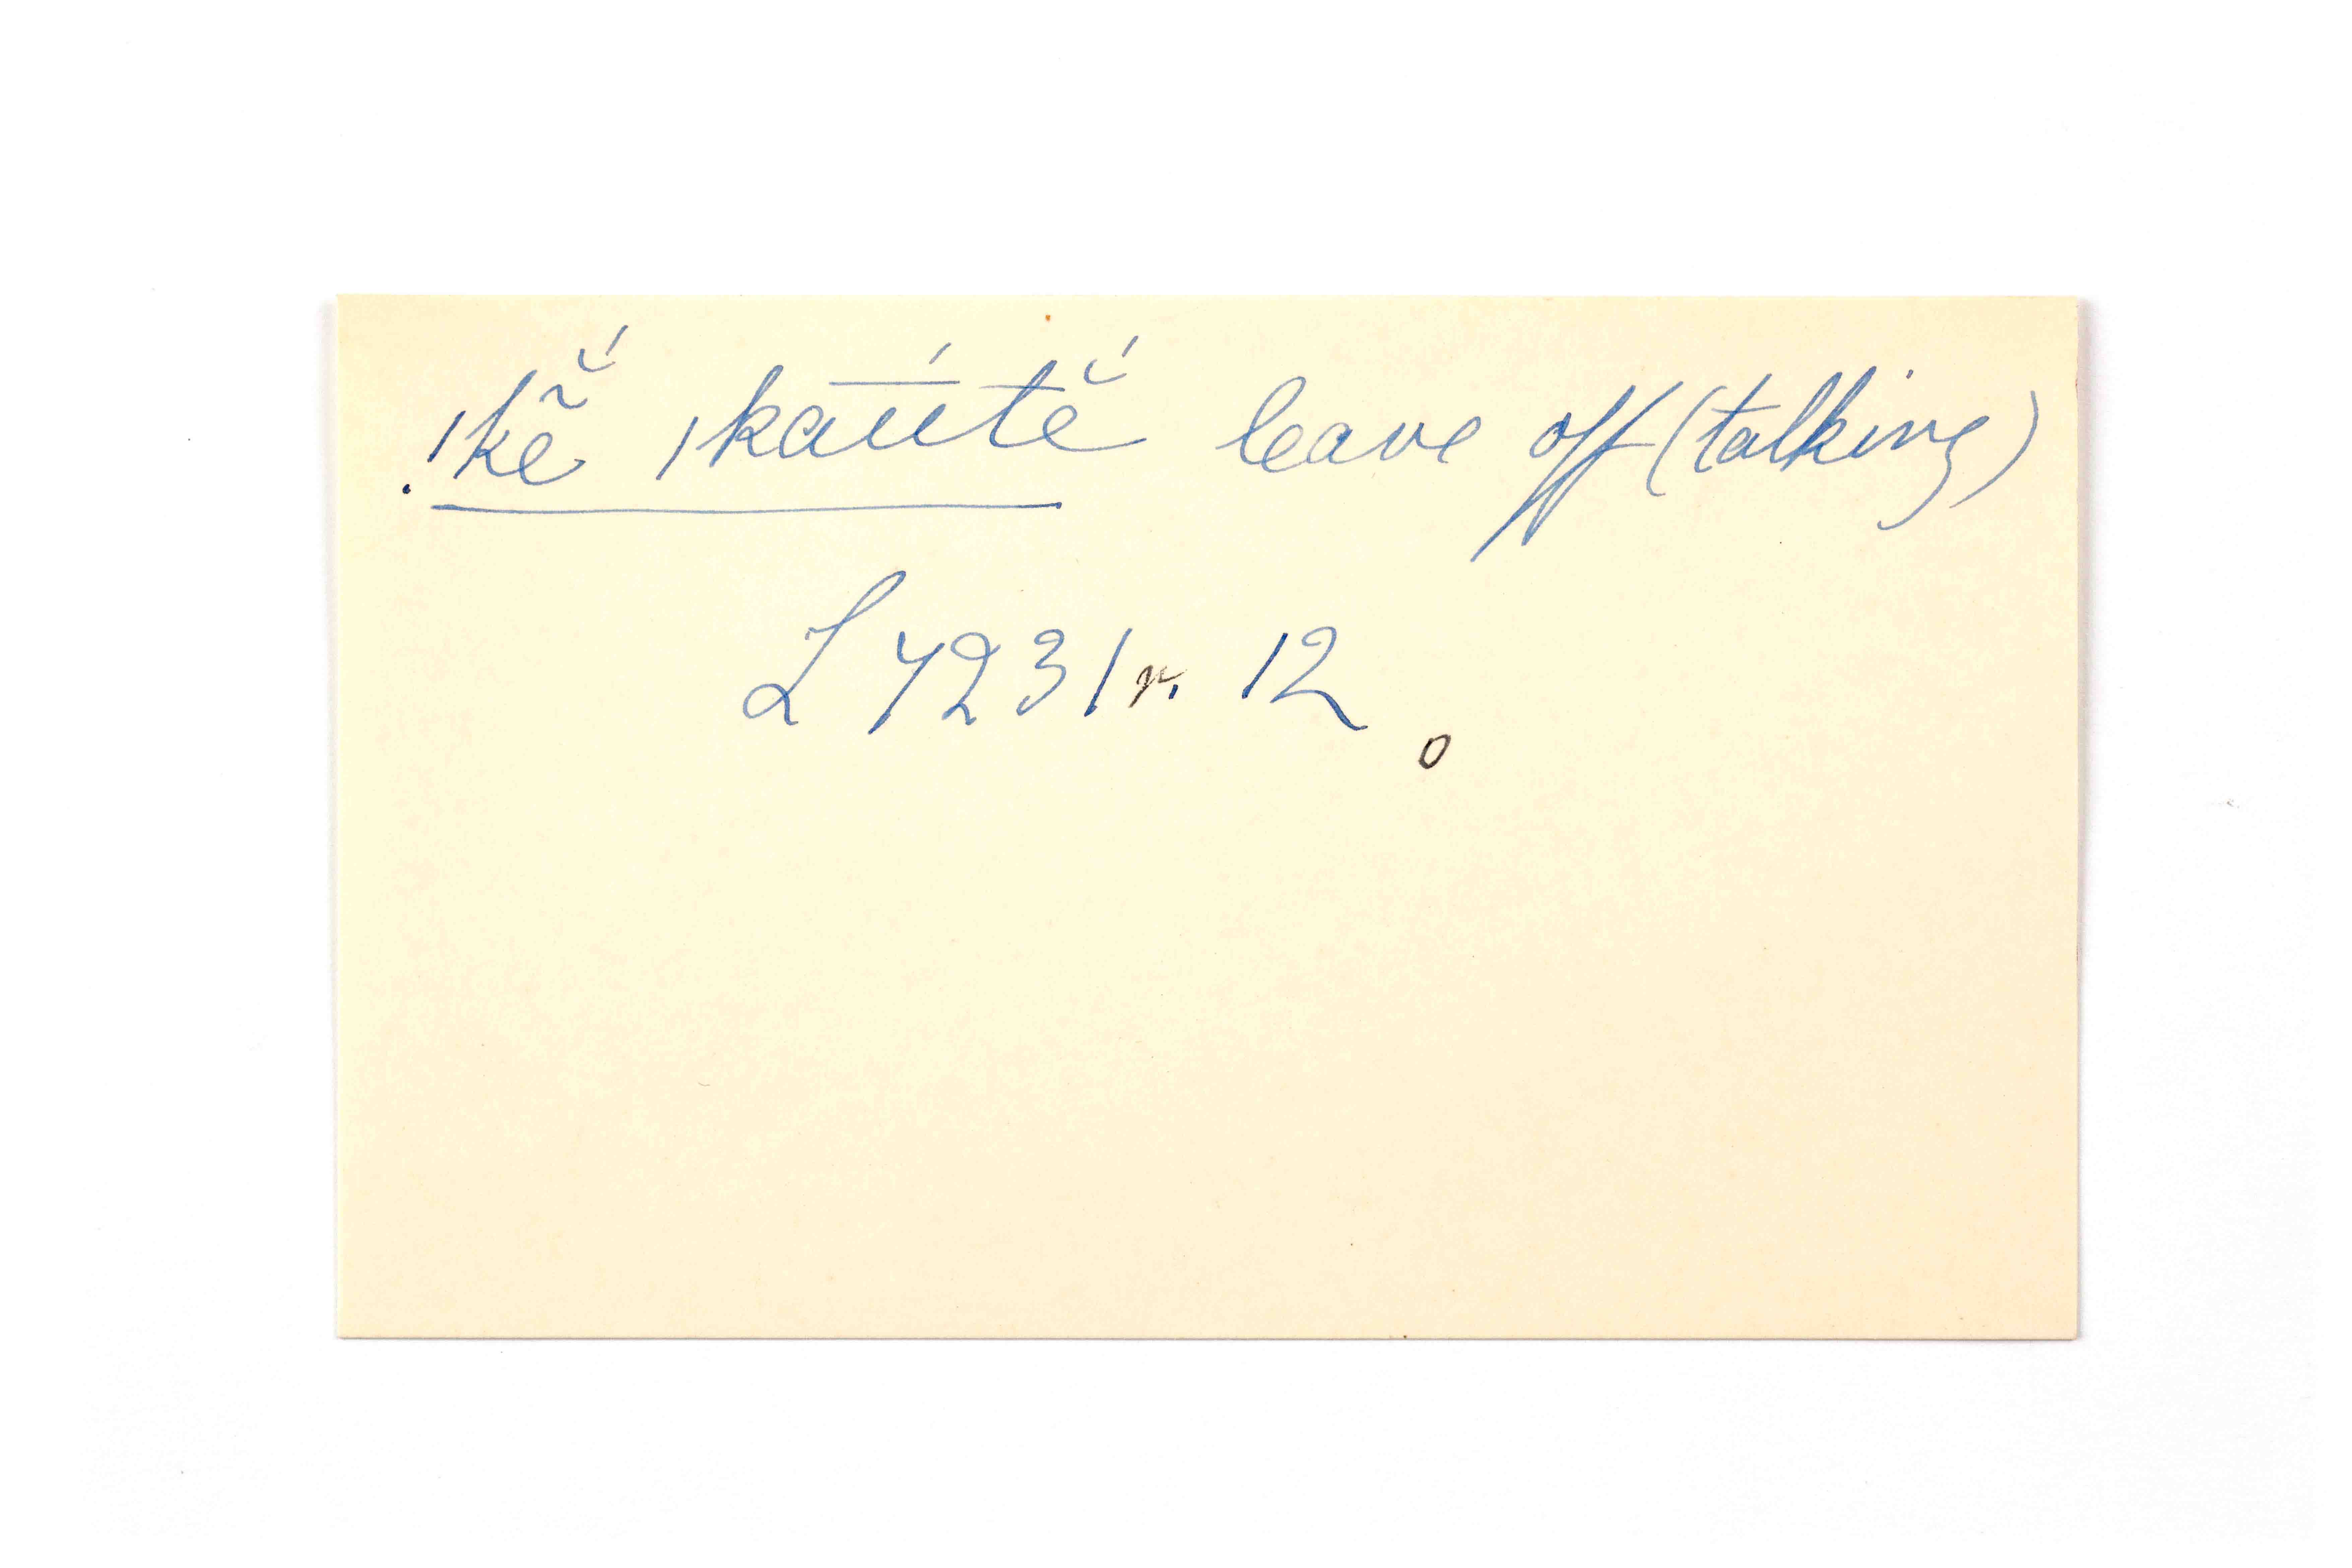 ıkẽ̆́ ıkau̅́tĕ́ leave off (talking)
L 7231r. 12
o